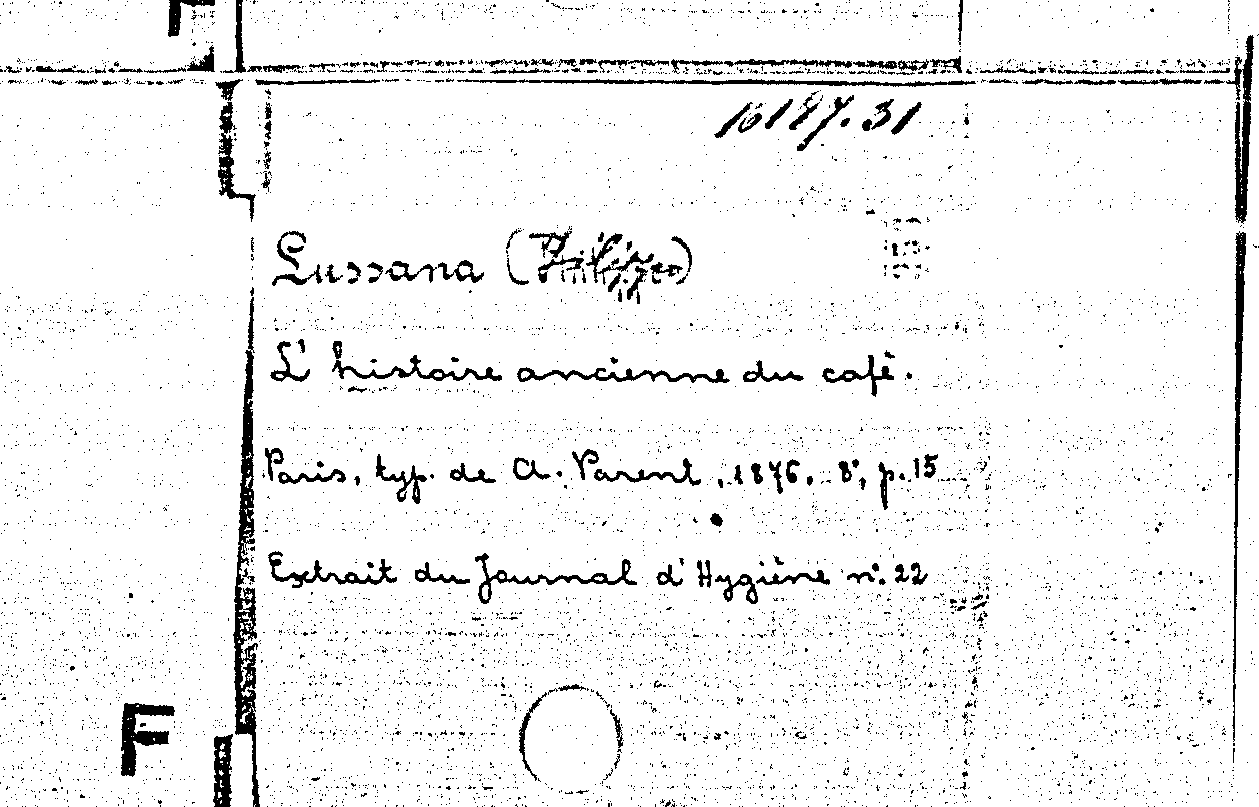 16197.31
Lussana (Filippo)
L'histoire ancienne du café.
Paris, typ. de A. Parent, 1876. 8°, p. 15
Extrait du Journal d'Hygiène n°. 22
F